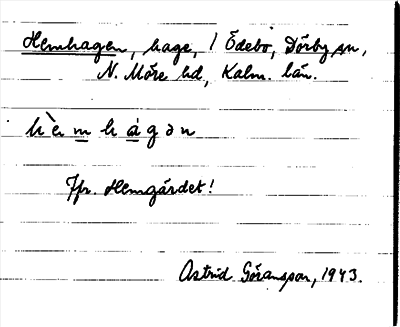 Hemhagen, hage, / Ödebo, Dörby sn,
N. Möre hd, Kalm. län.
hèmhágən
Jfr. Hemgärdet!
Astrid Göransson, 1943.